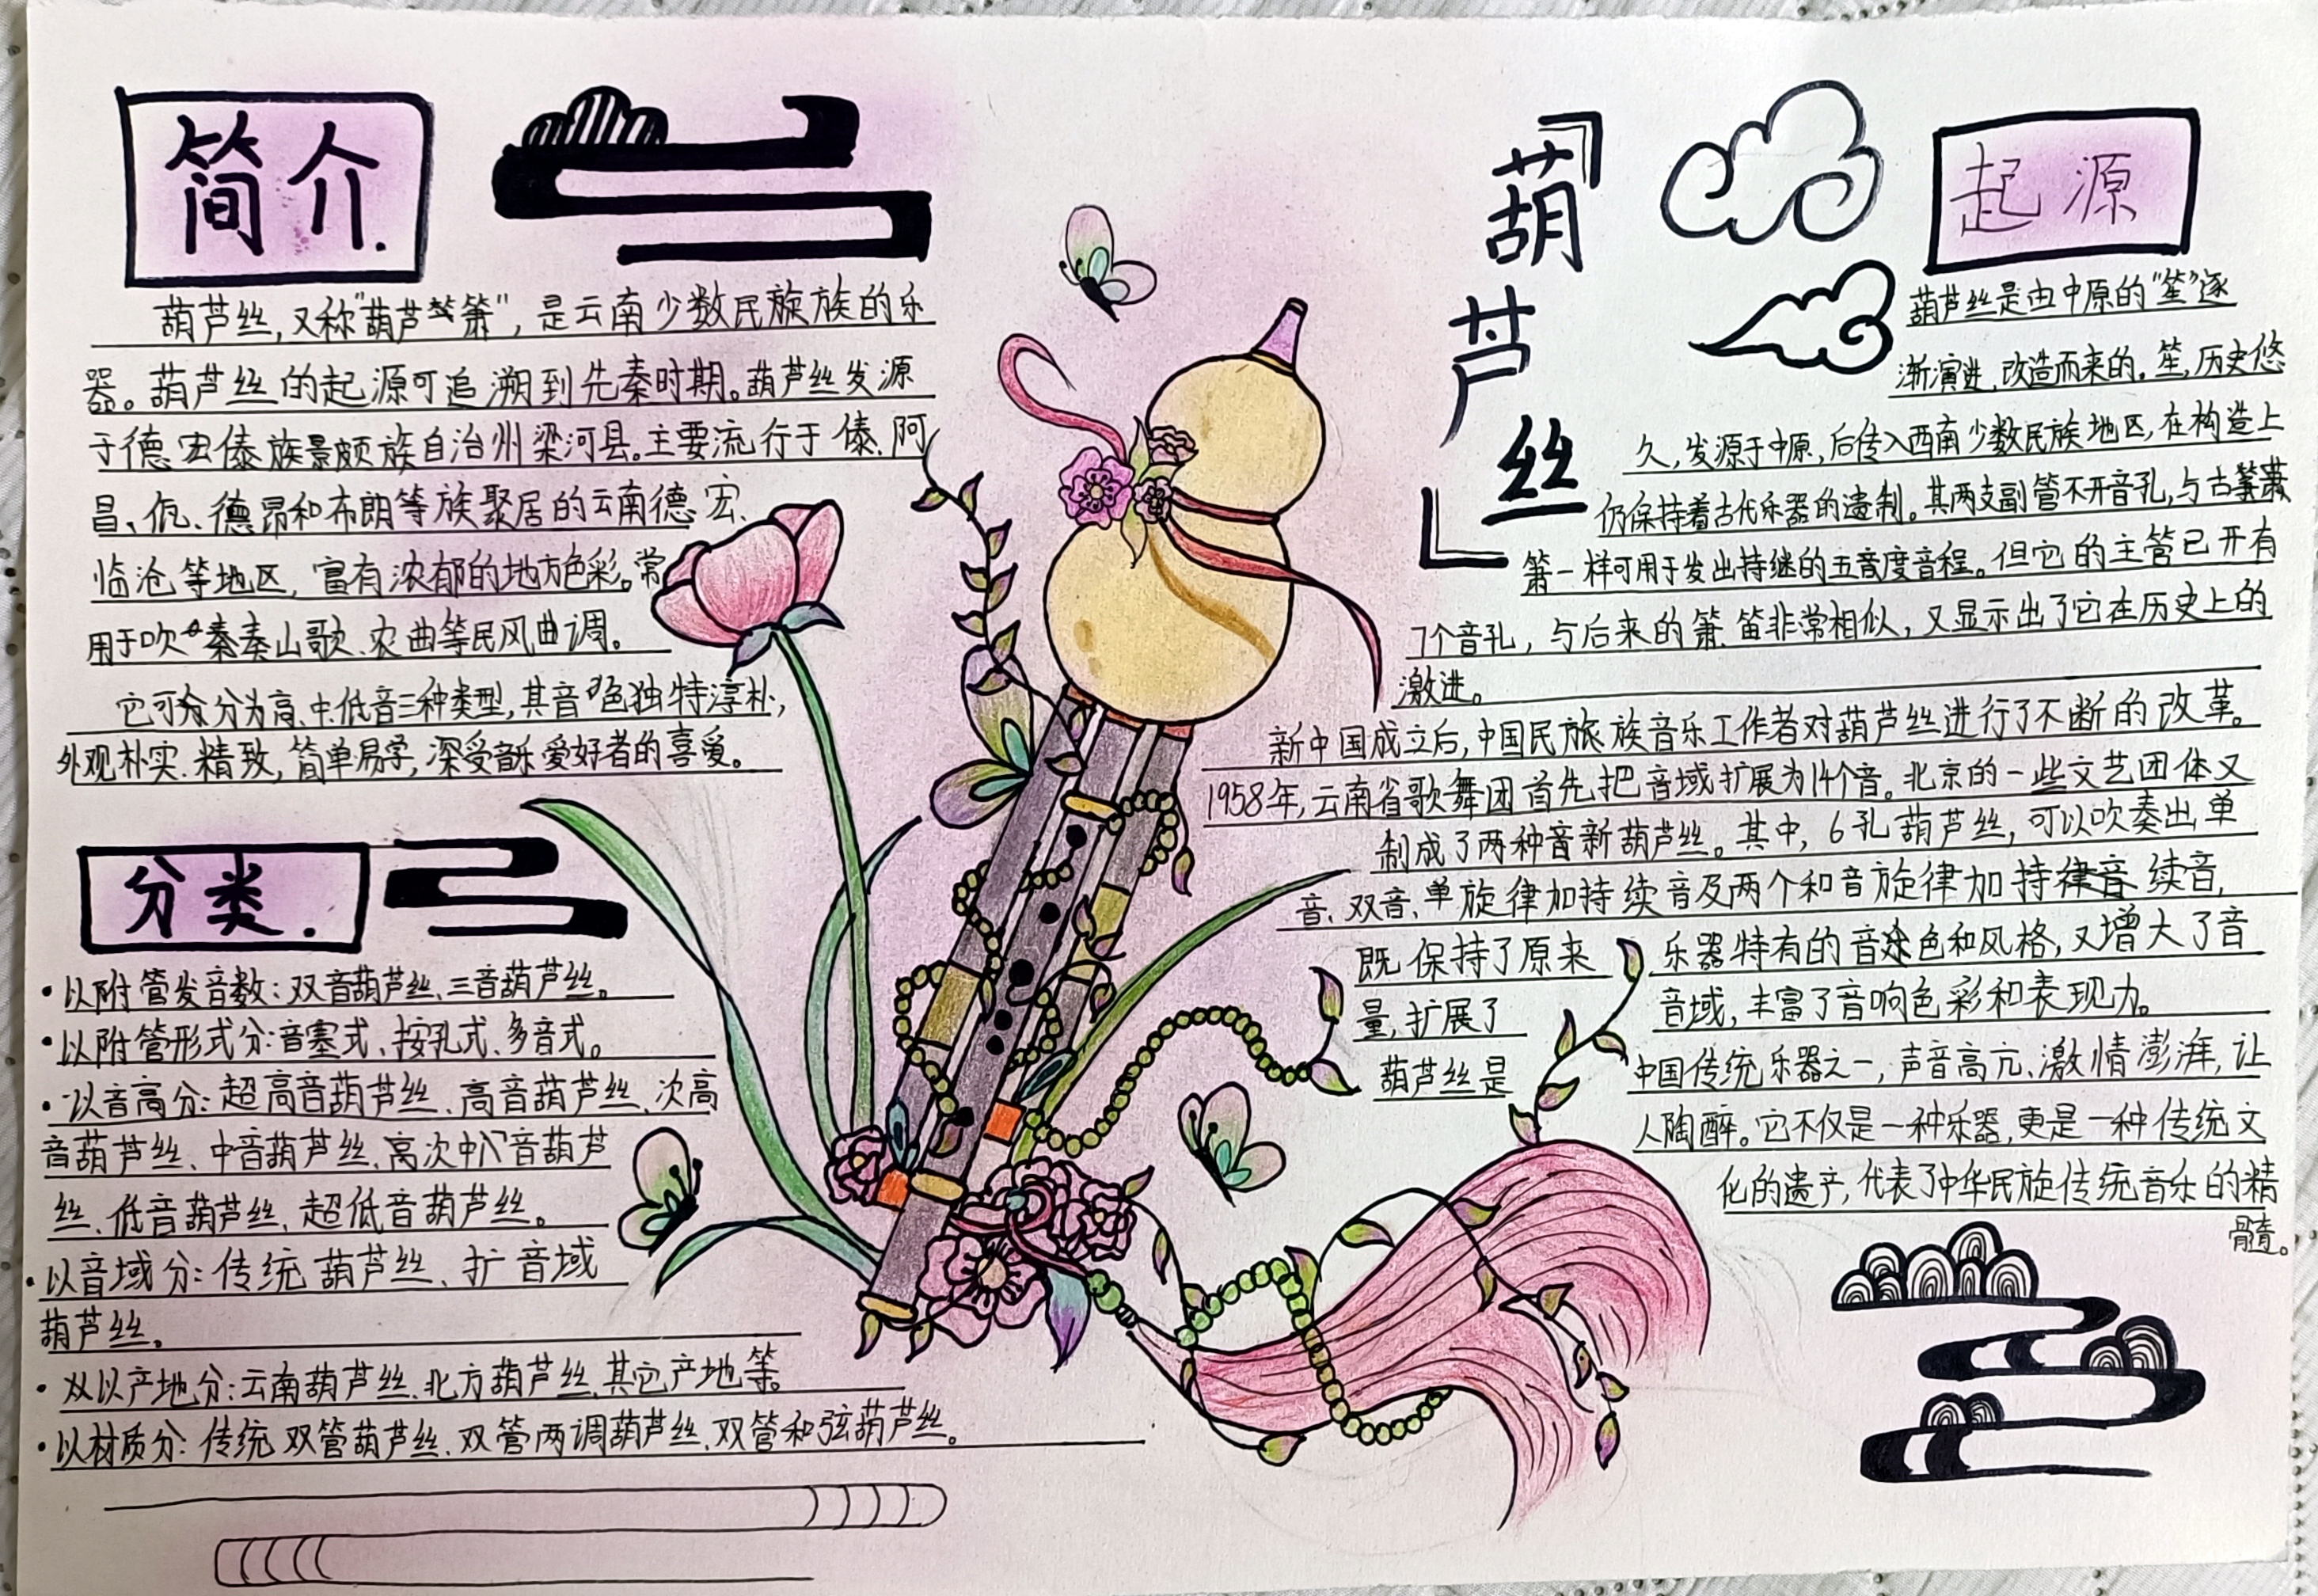 简介.
葫芦丝,又称"葫芦箫",是云南少数民族族的乐
器。葫芦丝的起源可追溯到先秦时期。葫芦丝发源
于德宏傣族景颇族自治州梁河县。主要流行于傣、阿
昌、佤、德昂和布朗等族聚居的云南德宏、
临沧等地区,富有浓郁的地方色彩。常
用于吹奏山歌、农曲等民风曲调。
它可分为高、中、低音三种类型,其音色独特淳朴,
外观朴实、精致,简单易学,深受音乐爱好者的喜爱。
分类.
·以附管发音数:双音葫芦丝、三音葫芦丝。
·以附管形式分:音塞式、按孔式、多音式。
·以音高分:超高音葫芦丝、高音葫芦丝、次高
音葫芦丝、中音葫芦丝、次中音葫芦
丝、低音葫芦丝、超低音葫芦丝。
·以音域分:传统葫芦丝、扩音域
葫芦丝。
·以产地分:云南葫芦丝、北方葫芦丝、其它产地等。
·以材质分:传统双管葫芦丝、双管两调葫芦丝、双管和弦葫芦丝。
『葫芦丝』
起源
葫芦丝是由中原的"笙"逐
渐演进、改造而来的。笙,历史悠
久,发源于中原,后传入西南少数民族地区,在构造上
仍保持着古代乐器的遗制。其两支副管不开音孔,与古
箫一样可用于发出持继的五音度音程。但它的主管已开有
7个音孔,与后来的箫、笛非常相似,又显示出了它在历史上的
激进。
新中国成立后,中国民族音乐工作者对葫芦丝进行了不断的改革。
1958年,云南省歌舞团首先把音域扩展为14个音。北京的一些文艺团体又
制成了两种音新葫芦丝。其中,6孔葫芦丝,可以吹奏出单
音、双音、单旋律加持续音及两个和音旋律加持续音,
既保持了原来乐器特有的音色和风格,又增大了音
量,扩展了音域,丰富了音响色彩和表现力。
葫芦丝是中国传统乐器之一,声音高亢、激情澎湃,让
人陶醉。它不仅是一种乐器,更是一种传统文
化的遗产,代表了中华民族传统音乐的精
髓。